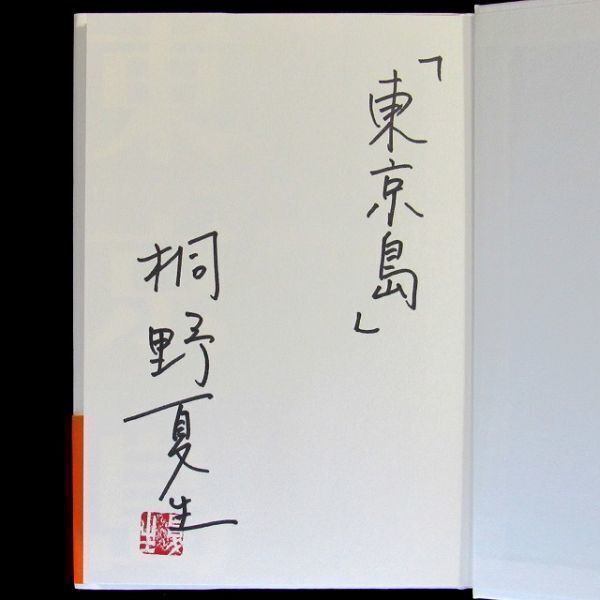 「東京島」
桐野夏生